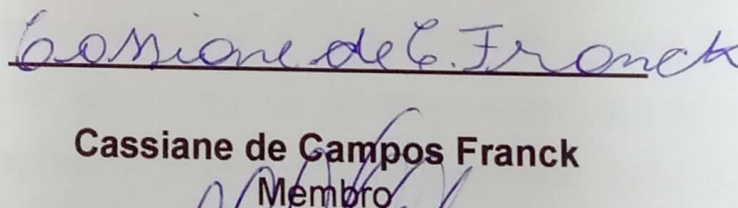 Cassiane de C. Franck
Cassiane de Campos Franck
Membro